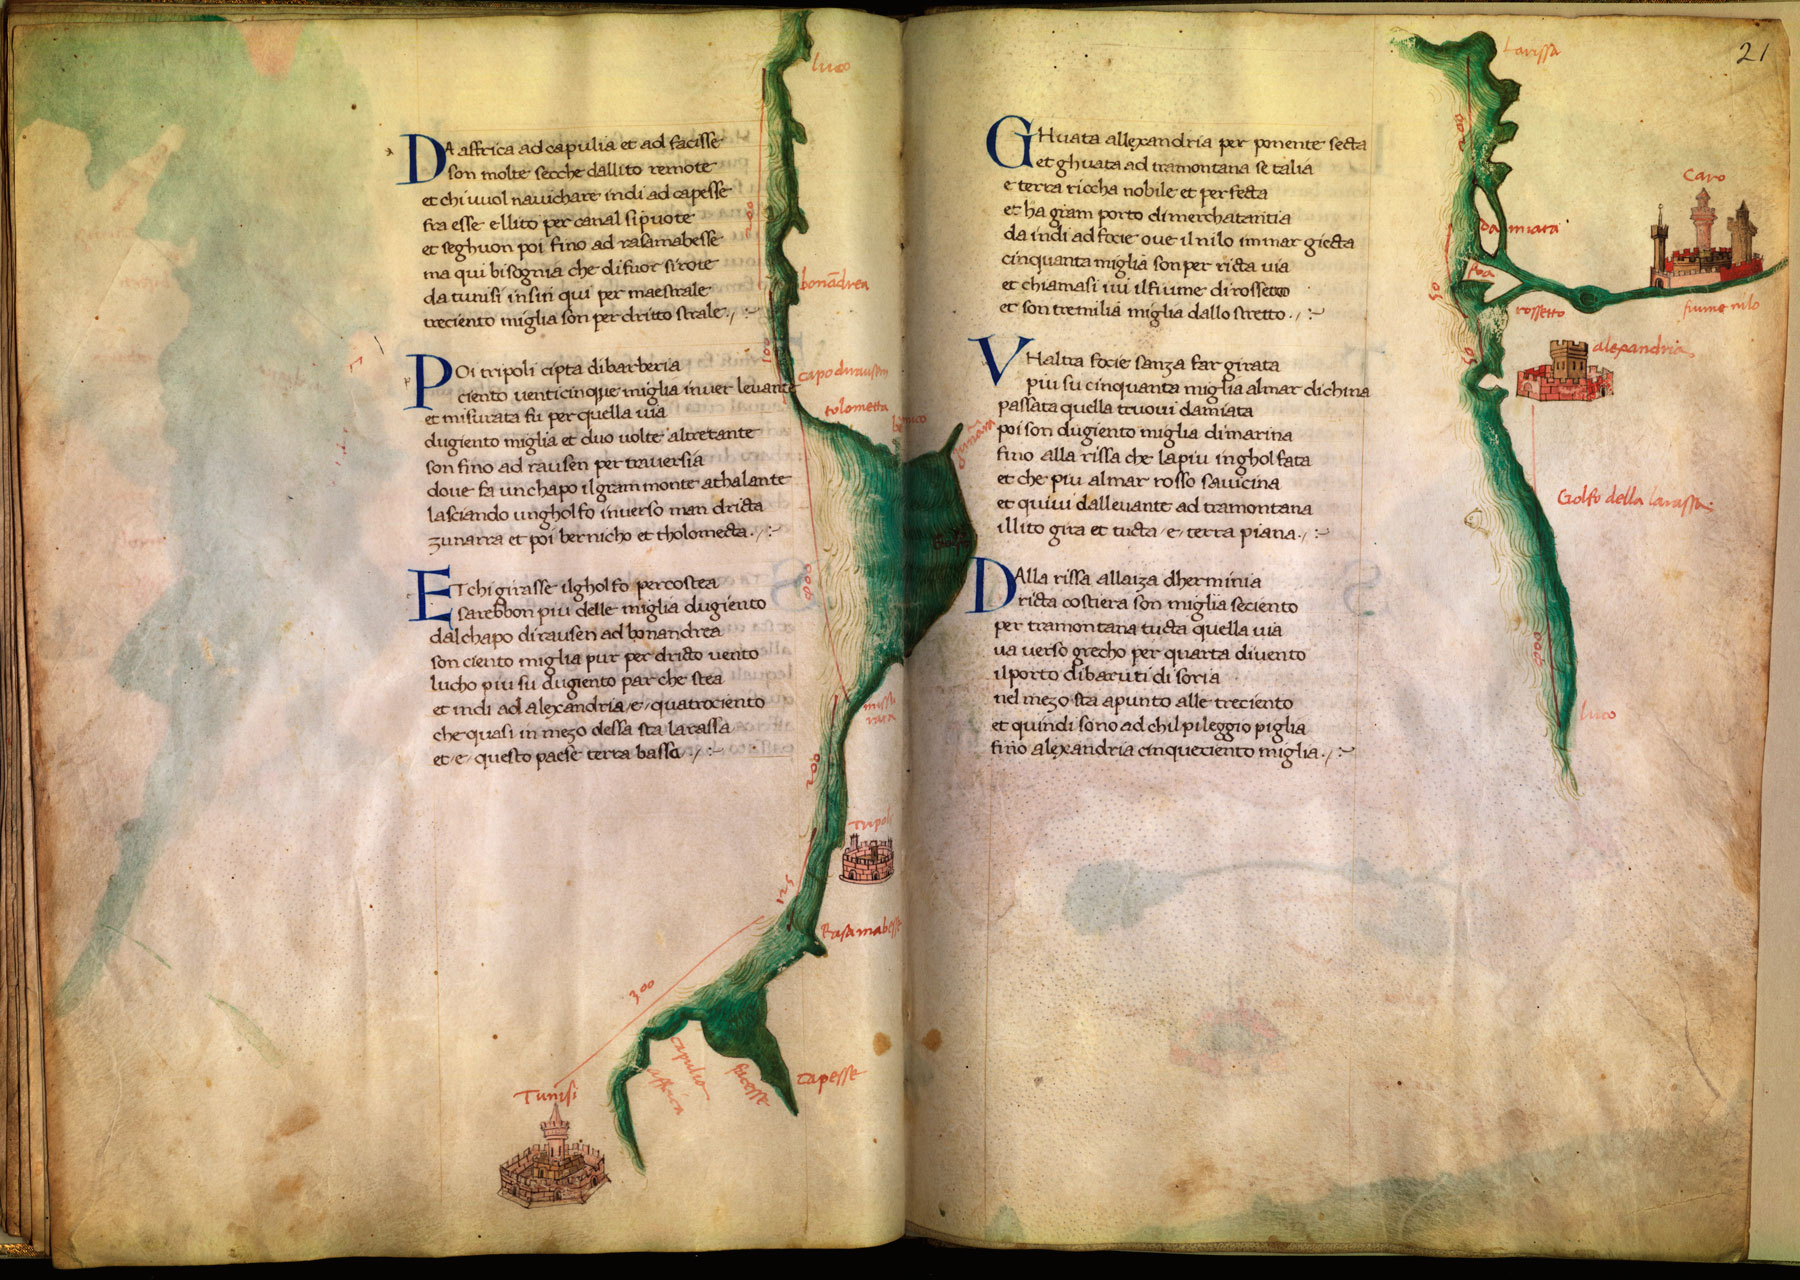 DA affrica ad capulia et ad facisse
son molte secche dallito remote
et chi vuol navichare indi ad capesse
fra esse e llito per canal si puote
et seghuon poi fino ad rasamabesse
ma qui bisognia che di fuor si rote
da tunisi insin qui per maestrale
treciento miglia son per dritto strale
POi tripoli cipta di barberia
ciento venticinque miglia inver levante
et misurata fu per quella via
dugiento miglia et duo volte altretante
son fino ad rausen per traversia
dove fa un chapo il gram monte athalante
lasciando un gholfo inverso man dricta
zunarra et poi bernicho et tholomecta
ET chi girasse il gholfo per costea
sarebbon piu delle miglia dugiento
dal chapo di rausen ad bonandrea
son ciento miglia pur per dricto vento
lucho piu su dugiento par che stea
et indi ad alexandria e quatrociento
che quasi in mezo dessa sta larassa
et e questo paese terra bassa
luco
200
bonādrea
100
capo durausem
tolometta
800
misurata
200
Tripoli
125
Rasamabesse
300
capulia
affrica
facesse
capesse
Tunisi
21
GHuata allexandria per ponente secta
et ghuata ad tramontana se talia
e terra riccha nobile et perfecta
et ha gram porto di merchatantia
da indi ad focie ove il nilo in mar giecta
cinquanta miglia son per ricta via
et chiamasi ivi il fiume di rossetto
et son tremilia miglia dallo stretto
VHaltra focie sanza far girata
piu su cinquanta miglia al mar di china
passata quella truovi damiata
poi son dugiento miglia di marina
fino alla rissa che la piu ingholfata
et che piu al mar rosso savicina
et quivi dallevante ad tramontana
illito gira et tucta e terra piana
DAlla rissa allaiza dherminia
ricta costiera son miglia seciento
per tramontana tucta quella via
va verso grecho per quarta di vento
il porto di baruti di soria
nel mezo sta apunto alle treciento
et quindi sono ad chil pileggio piglia
fino alexandria cinqueciento miglia
Larissa
200
damiata
Caro
foa
50
rossetto
fiume nilo
50
alexandria
Golfo della larassa
luco